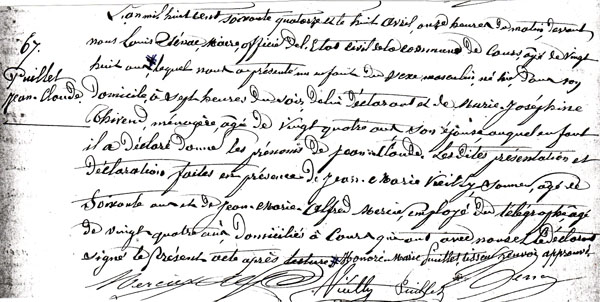 L'an mil huit cent soixante quatorze et le huit avril, onze heures du matin devant
67.
nous Louis Maire officier de l'Etat civil de la commune de Cours, agé de vingt
Puillet
huit ans, lequel nous a présenté un enfant du sexe masculin, né hier dans son
Jean-Claude
domicile, à sept heures du soir, de lui déclarant et de Marie-Joséphine
Chirend, ménagère, agé de vingt quatre ans son épouse auquel enfant
il a déclaré donner les prénoms de Jean-Claude. Les dites présentation et
déclaration faites en présence de Jean-Marie Vieilly agé de
soixante ans et de Jean-Marie-Alfred Mercier, employé du télégraphe agé
de vingt quatre ans domiciliés à Cours qui ont avec nous et le déclarant
signé le présent acte après lecture Honoré-Marie Puillet tisseur renvoi approuvé
Mercier Vieilly Puillet